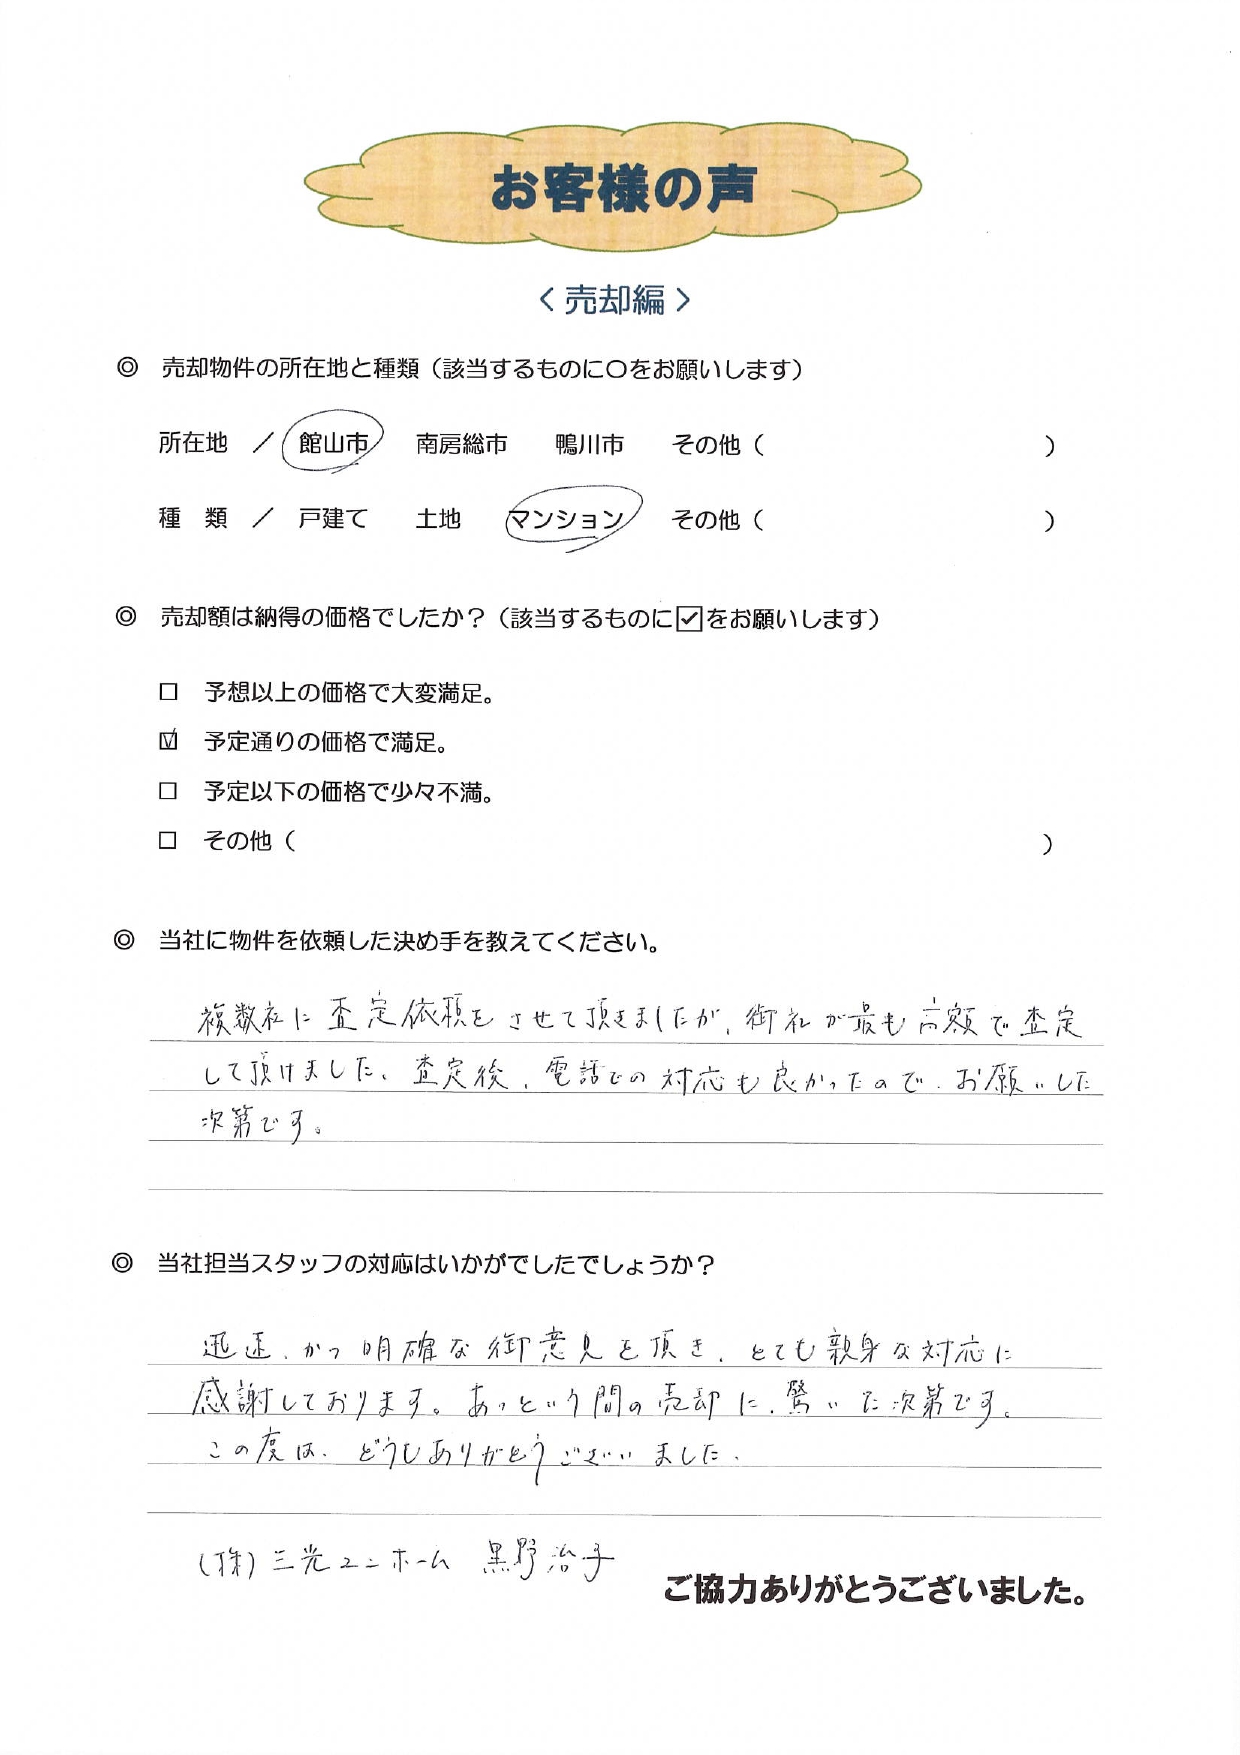 お客様の声
〈 売却編 〉
◎ 売却物件の所在地と種類（該当するものに〇をお願いします）
所在地 ／ 館山市 南房総市 鴨川市 その他（ ）
種 類 ／ 戸建て 土地 マンション その他（ ）
◎ 売却額は納得の価格でしたか？（該当するものに☑をお願いします）
□ 予想以上の価格で大変満足。
☑ 予定通りの価格で満足。
□ 予定以下の価格で少々不満。
□ その他（ ）
◎ 当社に物件を依頼した決め手を教えてください。
複数社に査定依頼をさせて頂きましたが、御社が最も高額で査定
して頂けました。査定後、電話での対応も良かったので、お願いした
次第です。
◎ 当社担当スタッフの対応はいかがでしたでしょうか？
迅速、かつ明確な御意見を頂き、とても親身な対応に
感謝しております。あっという間の売却に、驚いた次第です。
この度は、どうもありがとうございました。
(株)三光ユニホーム 黒野治子
ご協力ありがとうございました。